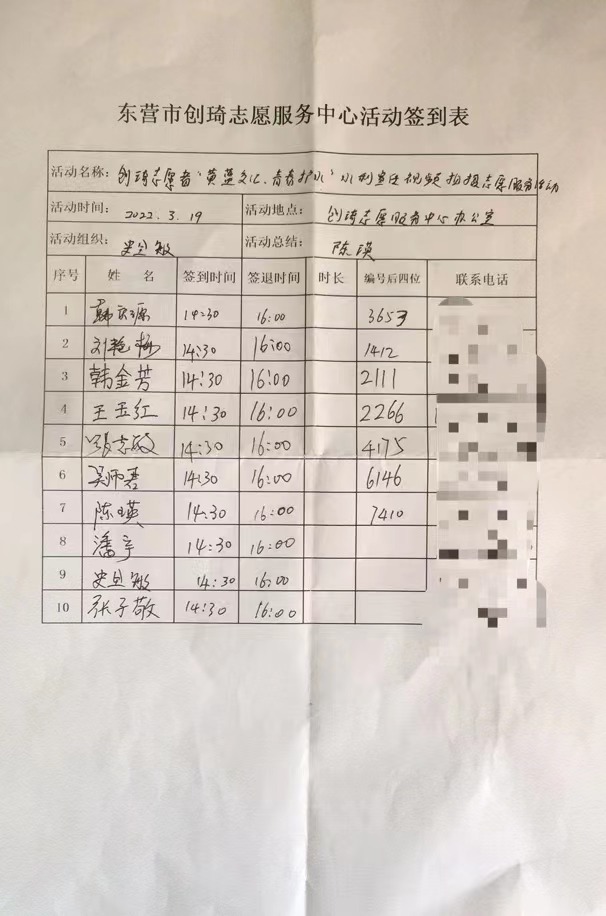 东营市创琦志愿服务中心活动签到表
活动名称: 创琦志愿者“黄蓝文化、青春护水”水利宣传视频拍摄志愿服务活动
活动时间: 2022.3.19 活动地点: 创琦志愿服务中心办公室
活动组织: 史丛敏 活动总结: 陈瑛
序号 姓名 签到时间 签退时间 时长 编号后四位 联系电话
1 14:30 16:00 3653
2 刘艳梅 14:30 16:00 1412
3 韩金芳 14:30 16:00 2111
4 王玉红 14:30 16:00 2266
5 张志敏 14:30 16:00 4175
6 14:30 16:00 6146
7 陈瑛 14:30 16:00 7410
8 潘宇 14:30 16:00
9 史丛敏 14:30 16:00
10 张子敬 14:30 16:00